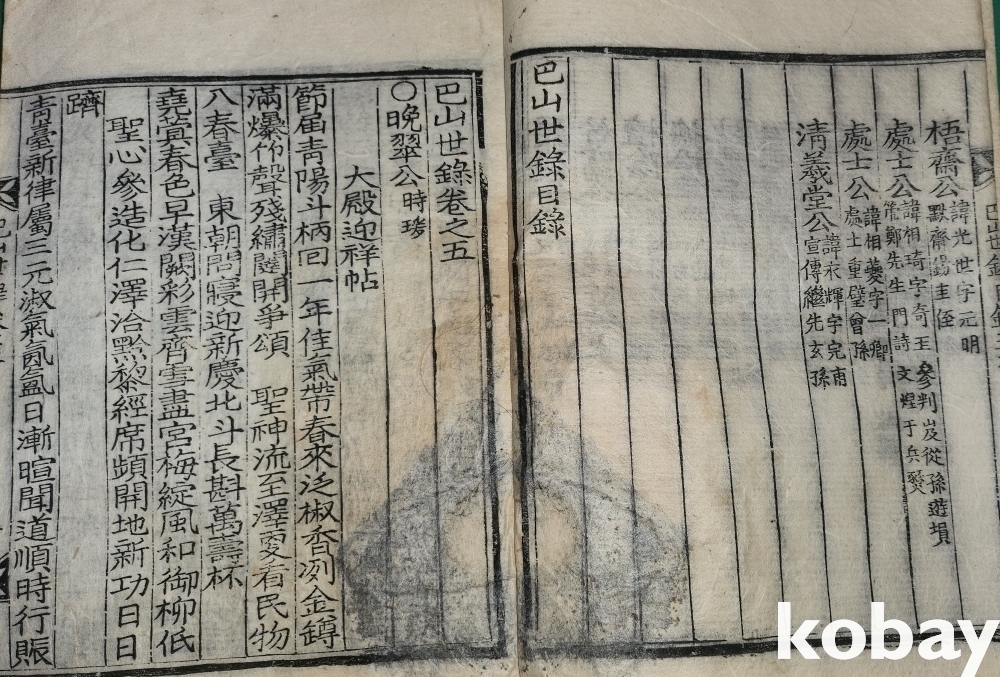 梧齋公 諱光世字元明
默齋錫圭侄
處士公 諱相琦字奇玉 參判岌從孫遊塤
篪鄭先生門詩文煋于兵燹
處士公 諱相夔字一卿
處士重璧曾孫
淸羲堂公 諱衣輝字完甫
宣傳繼先玄孫
巴山世錄目錄
巴山世錄卷之五
○晚翠公 時瑃
大殿迎祥帖
節届靑陽斗柄回一年佳氣帶春來泛椒香冽金罇
滿爆竹聲殘繡闥開爭頌 聖神流至澤更看民物
八春臺 東朝問寢迎新慶北斗長斟萬壽杯
堯蓂春色早漢闕彩雲齊雪盡宮梅綻風和御柳低
聖心參造化仁澤洽黔黎經席頻開地新功日日
躋
靑臺新律屬三元淑氣氤氳日漸暄聞道順時行賑
kobay